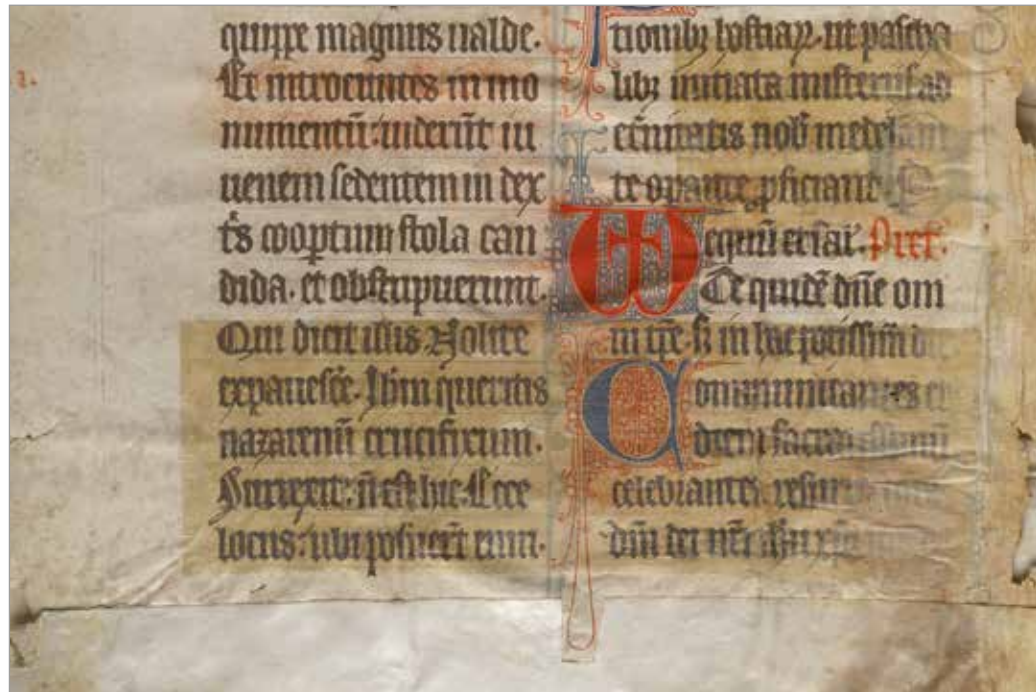 quippe magnus ualde.
Et introeuntes in mo
numentū: uiderūt iu
uenem sedentem in dex
tͥs coopͭum stola can
dida. et obstupuerunt.
Qui dicit illis Nolite
expauesce͛. Ihm queritis
nazarenū crucifixum.
Surrexit: ñ est hic. Ecce
locus: ubi posuer̄t eum.
tionibꝫ hostiaꝝ. ut pascha
libꝫ initiata misterijs ad
et̄nitatis nob̄ medelam
te operante ꝓficiant
equū et sal. Pref.
Te quidē dñe om
ni tp̄e. sꝫ in hac potissimū
Comunicantes et
diem sacratissimū
celebrantes. resur
dñi dei nr̄i ihū xp̄i